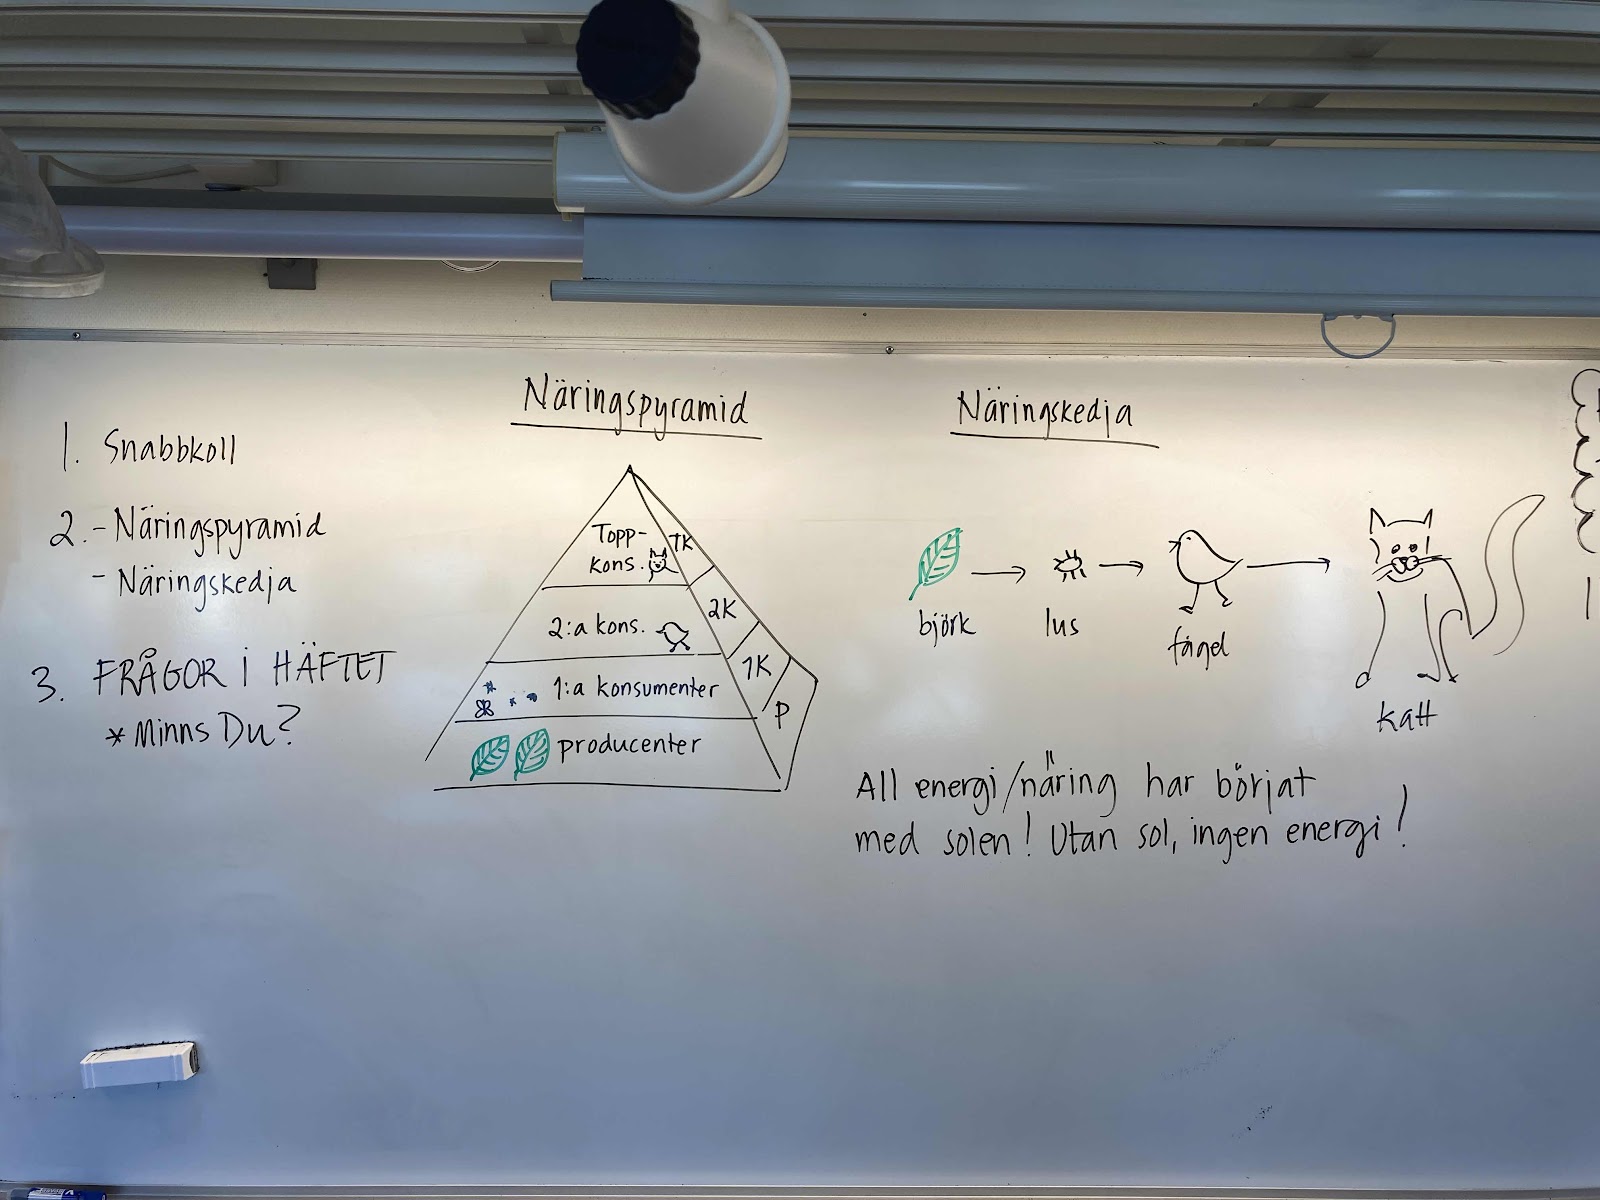 1. Snabbkoll
2. - Näringspyramid
- Näringskedja
3. FRÅGOR I HÄFTET
* Minns Du?
Näringspyramid
Topp-
kons.
TK
2:a kons.
2K
1:a konsumenter
1K
producenter
P
Näringskedja
björk
lus
fågel
katt
All energi/näring har börjat
med solen! Utan sol, ingen energi!